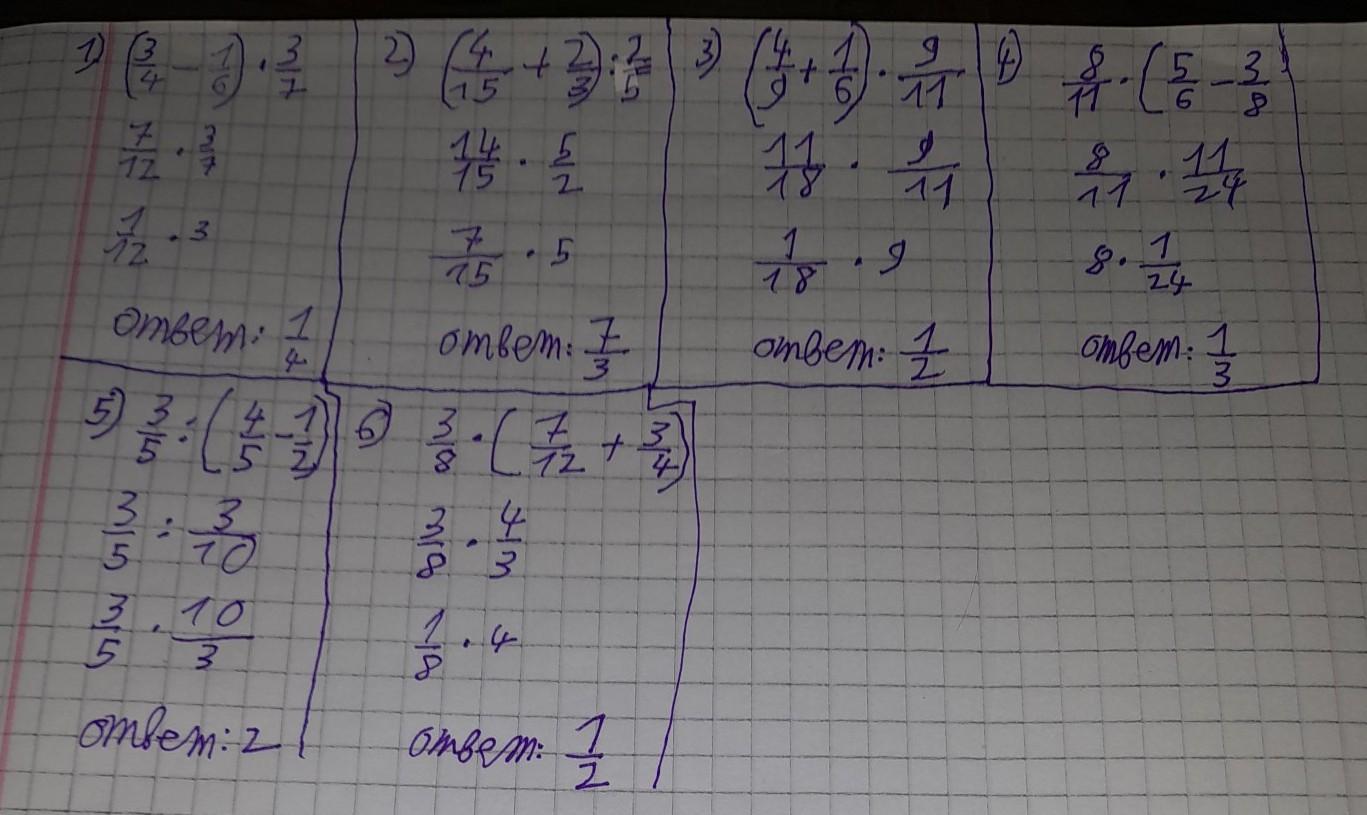 1) (3/4 - 1/6) · 3/7
7/12 · 3/7
1/12 · 3
ответ: 1/4
2) (4/15 + 2/3) : 2/5
14/15 · 5/2
7/15 · 5
ответ: 7/3
3) (4/9 + 1/6) · 9/11
11/18 · 9/11
1/18 · 9
ответ: 1/2
4) 8/11 · (5/6 - 3/8
8/11 · 11/24
8 · 1/24
ответ: 1/3
5) 3/5 : (4/5 - 1/2)
3/5 : 3/10
3/5 · 10/3
ответ: 2
6) 3/8 · (7/12 + 3/4)
3/8 · 4/3
1/8 · 4
ответ: 1/2